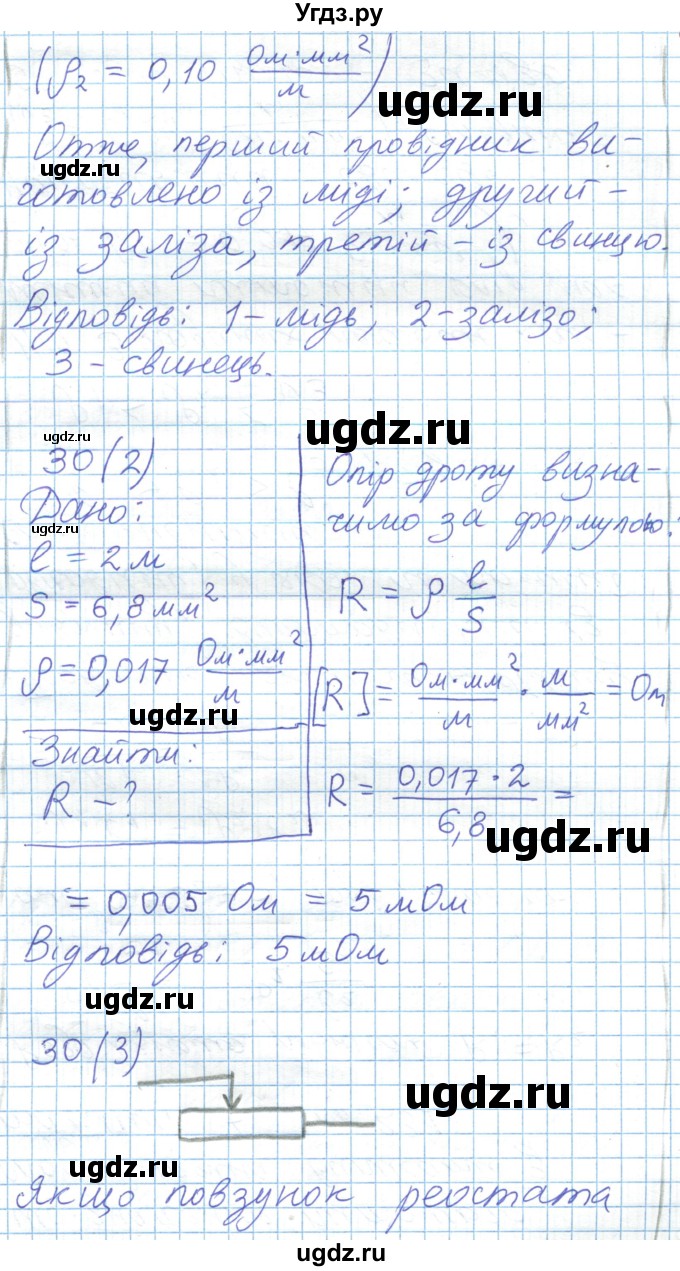 Угдз.ру
(ρ₂ = 0,10 Ом·мм²/м)
ugdz.ru
Отже, перший провідник ви-
ugdz.ru
готовлено із міді; другий -
із заліза, третій - із свинцю.
Відповідь: 1 - мідь; 2 - залізо;
3 - свинець.
ugdz.ru
ugdz.ru
30 (2)
Дано:
ugdz.ru
l = 2 м
S = 6,8 мм²
ρ = 0,017 Ом·мм²/м
ugdz.ru
Знайти:
R - ?
Опір дроту визна-
чимо за формулою:
R = ρ l/S
[R] = Ом·мм²/м · м/мм² = Ом
R = 0,017·2/6,8 =
ugdz.ru
= 0,005 Ом = 5 мОм
Відповідь: 5 мОм
ugdz.ru
30 (3)
ugdz.ru
ugdz.ru
Якщо повзунок реостата
ugdz.ru